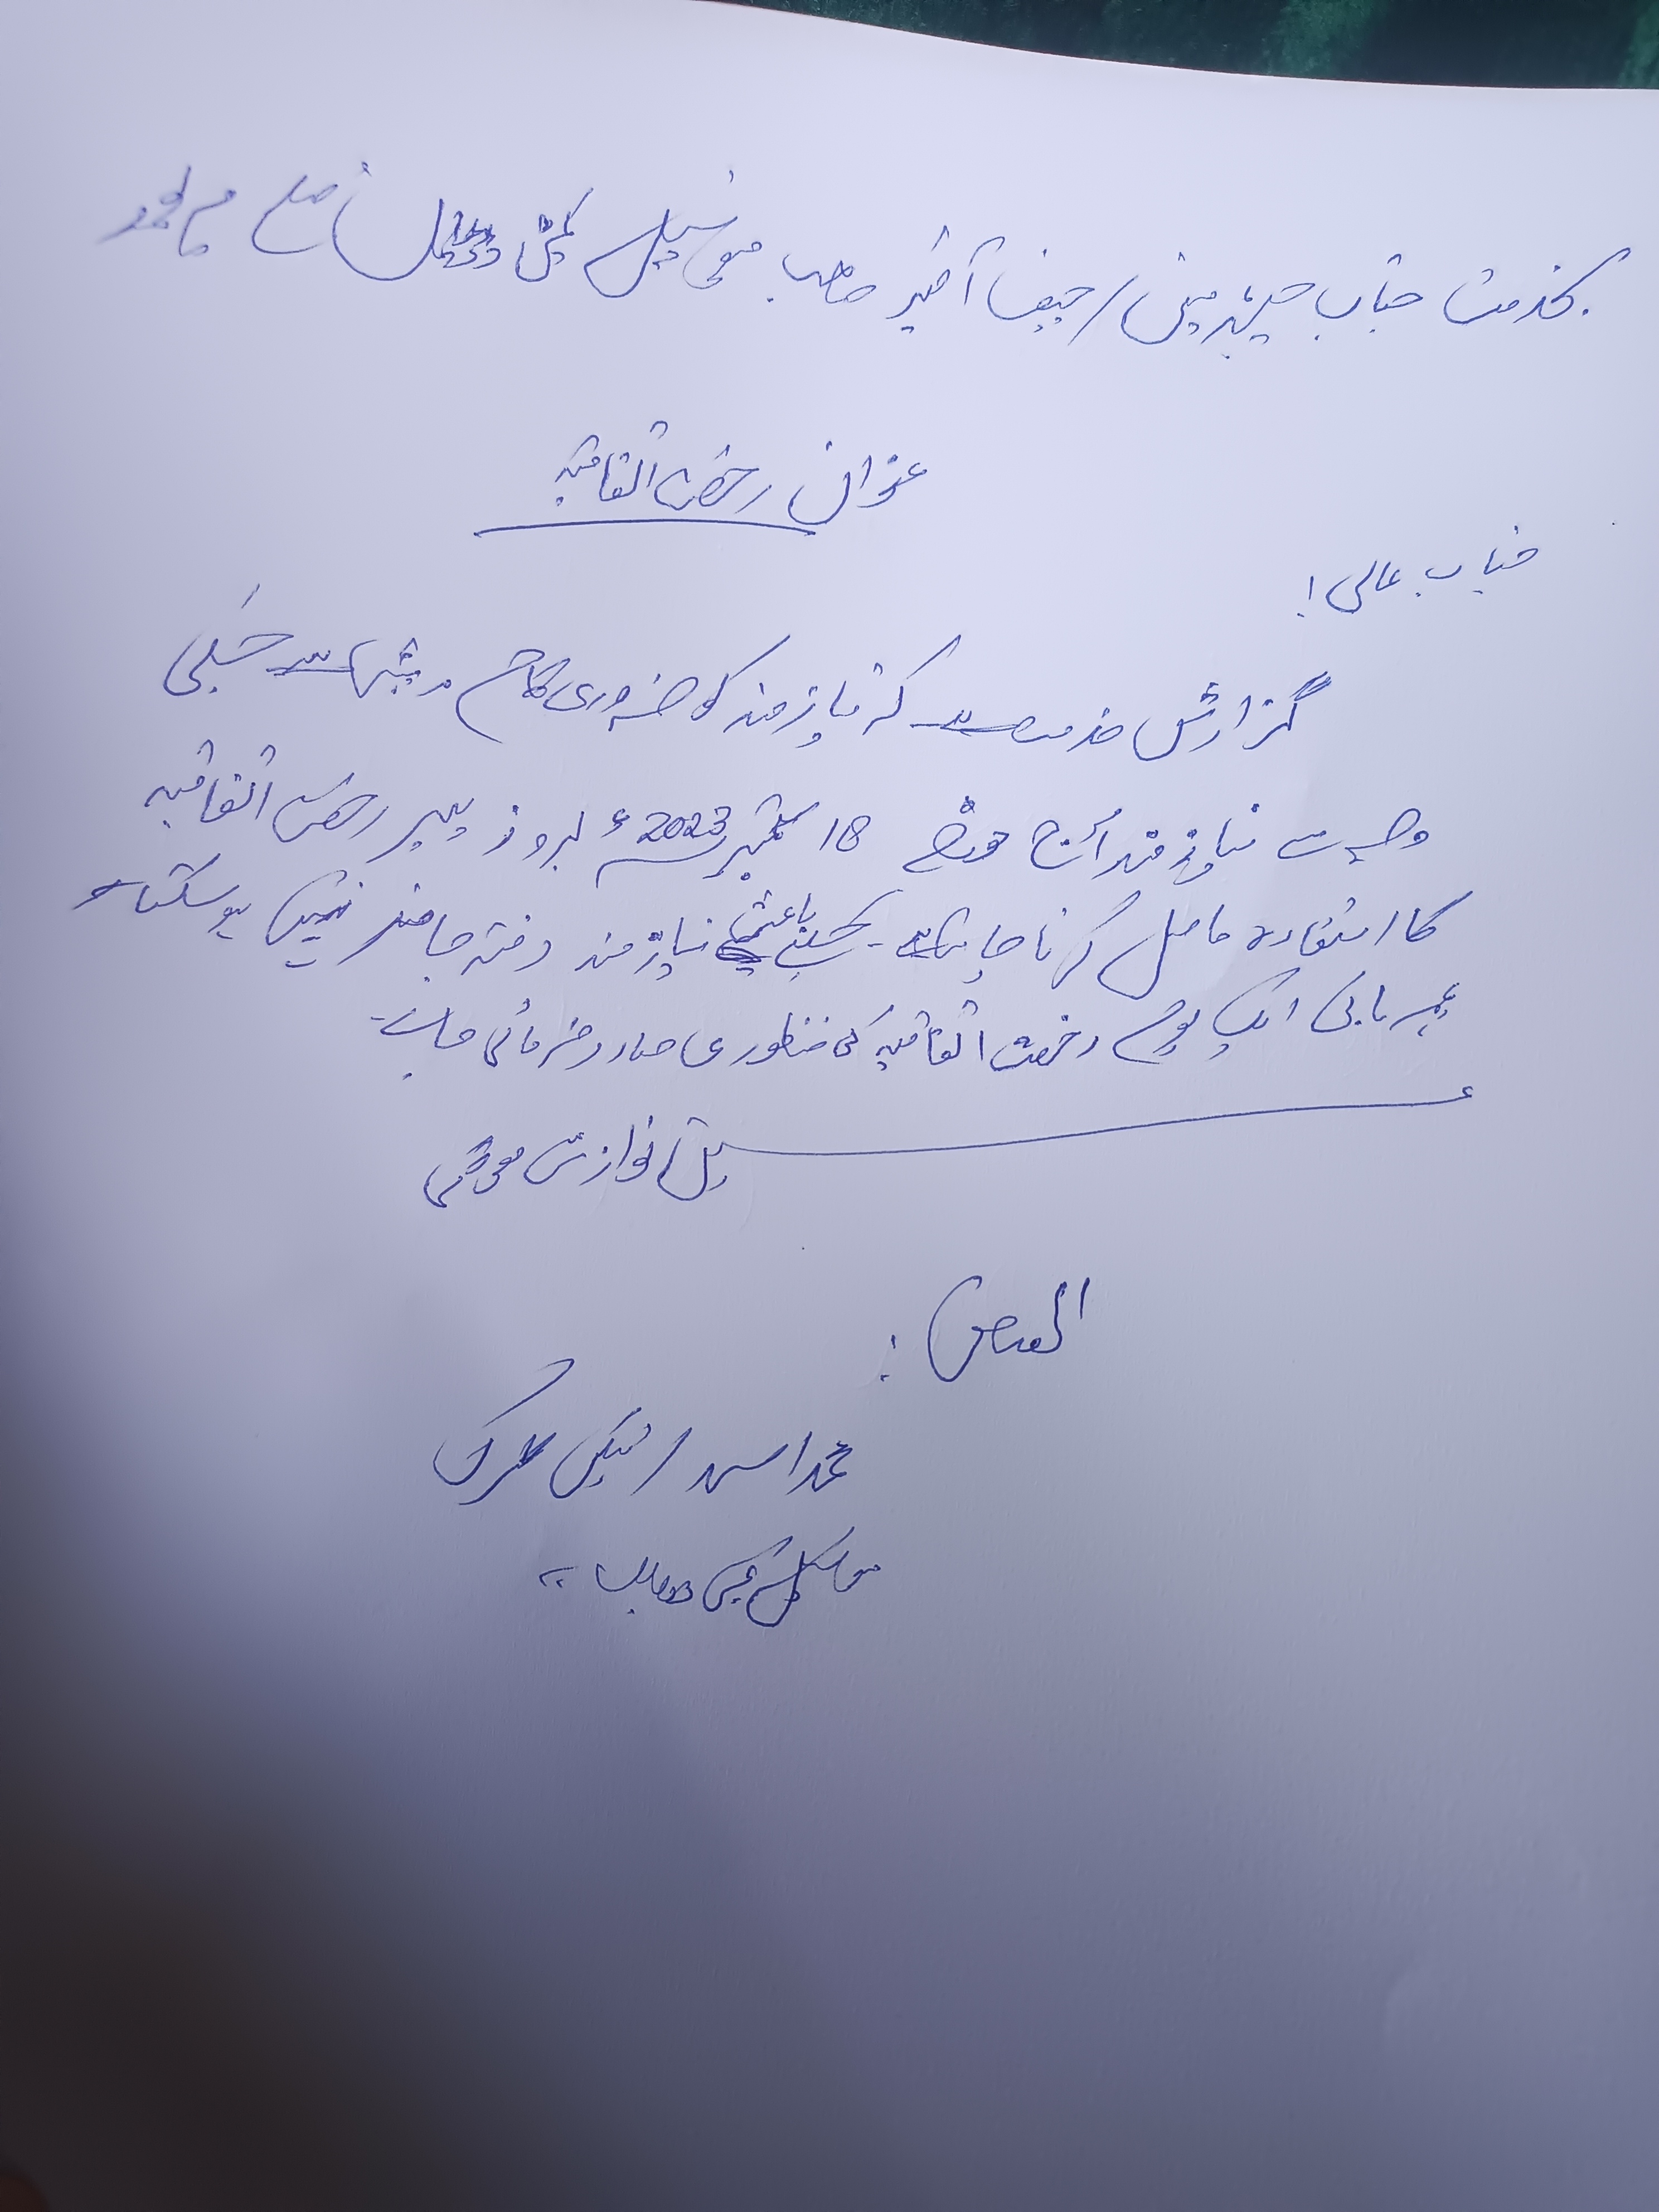 بخدمت جناب چیئرمین/چیف آفیسر صاحب میونسپل کمیٹی ضلع
عنوان رخصت اتفاقیہ
جناب عالی!
گزارش خدمت ہے کہ نیازمند کو ضروری کام درپیش ہے جسکی
وجہ سے نیازمند آج مورخہ 18 ستمبر 2023ء بروز پیر رخصت اتفاقیہ
کا استفادہ حاصل کرنا چاہتا ہے۔ جسکے باعث نیازمند دفتر حاضر نہیں ہو سکتا ہے
مہربانی ایک یوم رخصت اتفاقیہ کی منظوری صادر فرمائی جاۓ۔
عین نوازش ہوگی
العارض:
محمد اسد / کلرک
میونسپل کمیٹی